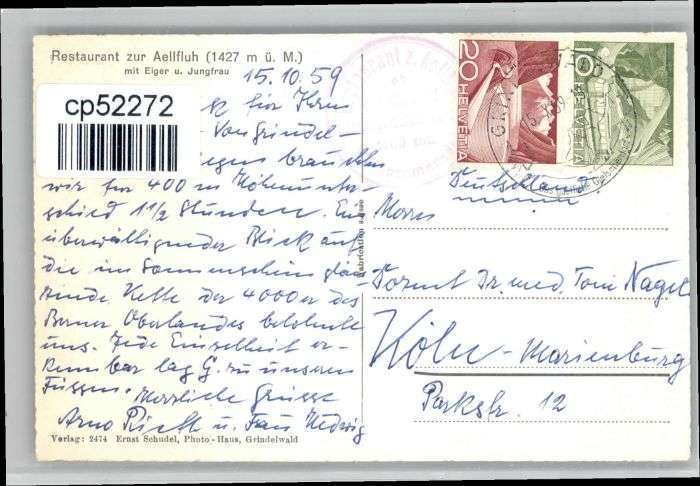 Restaurant zur Aellfluh (1427 m ü. M.)
mit Eiger u. Jungfrau
15.10.59
cp52272
für Ihren
Von Grindel-
brauchten
wir für 400 m Höhenunter-
schied 1 1/2 Stunden. Ein
überwältigender Blick auf
die im Sonnenschein glän-
zende Kette der 4000er des
Berner Oberlandes belohnte
uns. Jede Einzelheit er-
kennbar lag G. zu unseren
Füssen. Herzliche Grüsse
Arno u. Frau Hedwig
Verlag: 2474 Ernst Schudel, Photo-Haus, Grindelwald
Fabrication suisse
20
HELVETIA
10
HELVETIA
GRINDELWALD
Deutschland
Herrn
Dr. med. Toni Nagel
Köln-Marienburg
Parkstr. 12